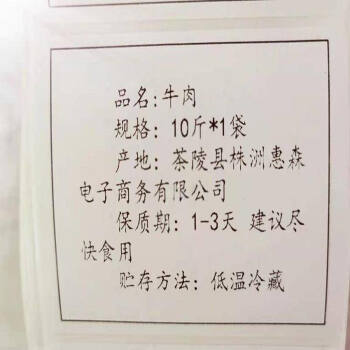 品名:牛肉
规格: 10斤*1袋
产地: 茶陵县株洲惠森
电子商务有限公司
保质期: 1-3天 建议尽
快食用
贮存方法: 低温冷藏